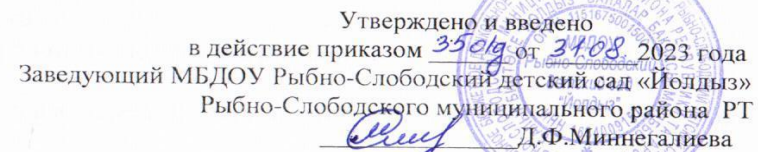 Утверждено и введено
в действие приказом 350/д от 31.08. 2023 года
Заведующий МБДОУ Рыбно-Слободский детский сад «Йолдыз»
Рыбно-Слободского муниципального района РТ
Д.Ф.Миннегалиева